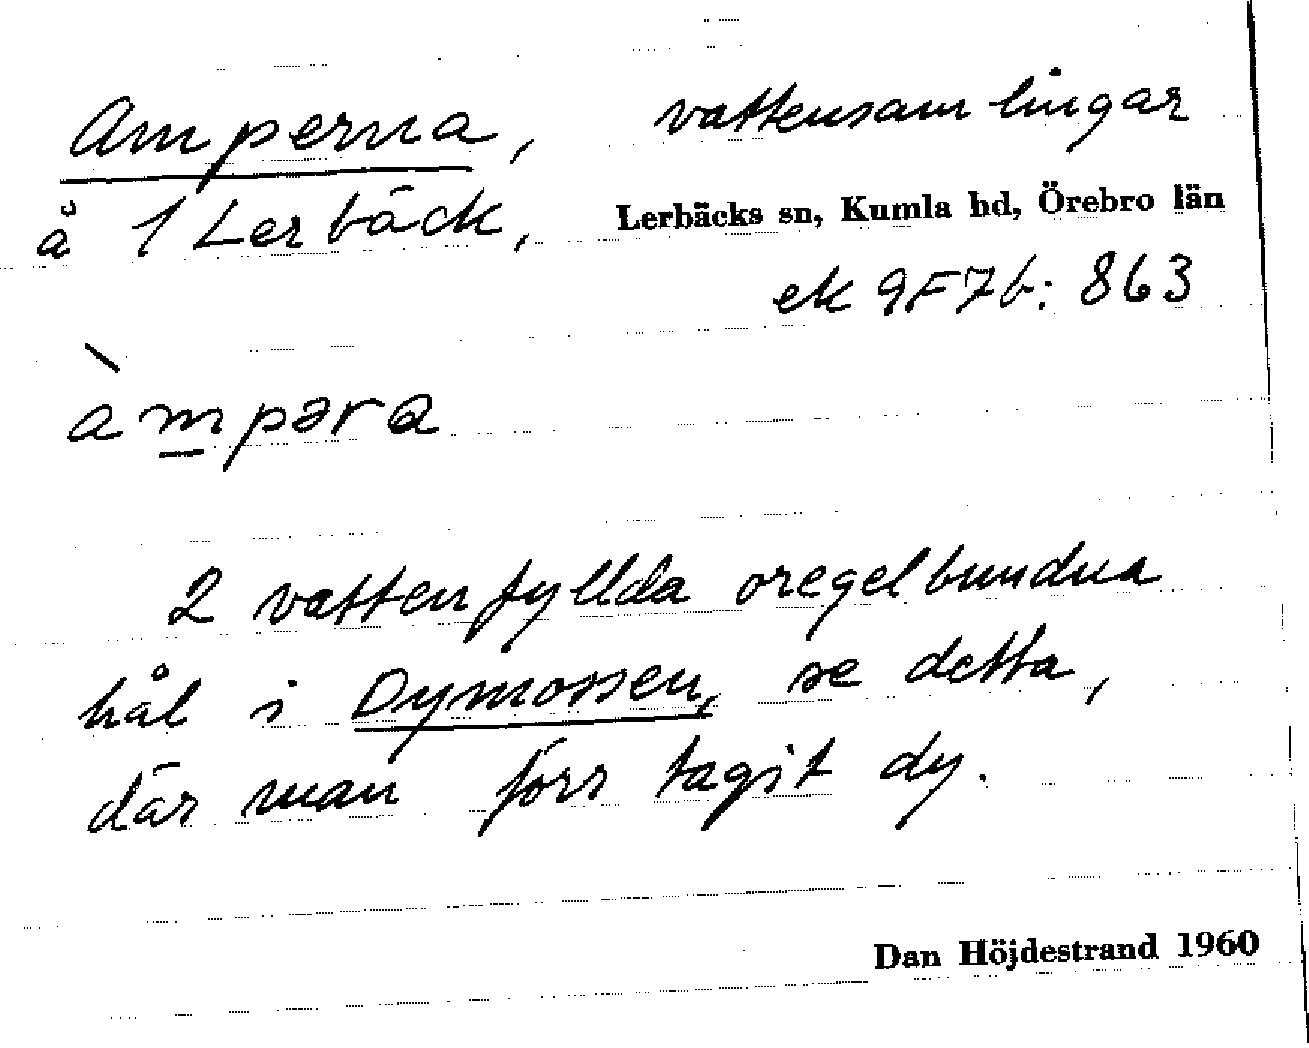 Amperna, vattensamlingar
å 1 Lerbäck, Lerbäcks sn, Kumla hd, Örebro län
ek 9F7b: 863
àmpəra
2 vattenfyllda oregelbundna
hål i Dymossen, se detta,
där man förr tagit dy.
Dan Höjdestrand 1960